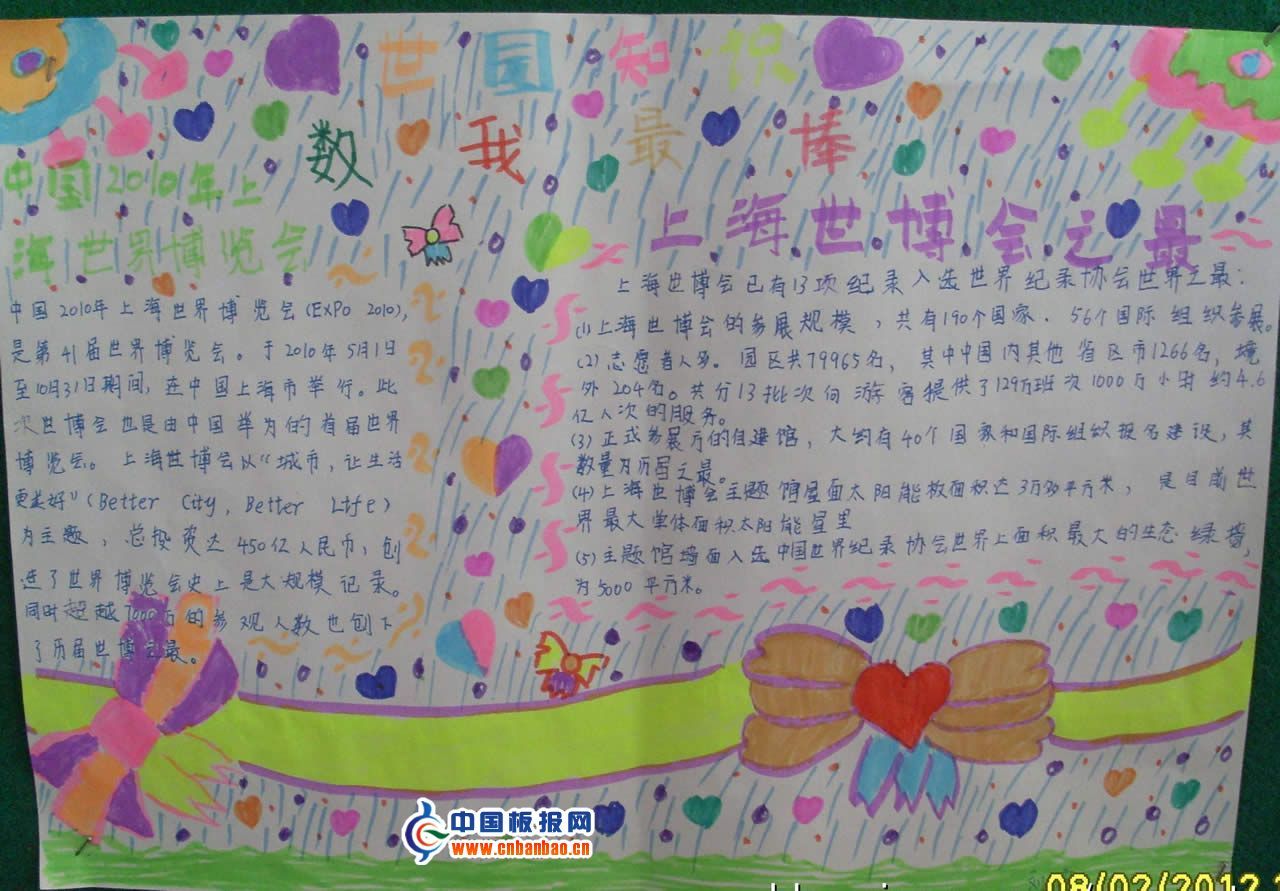 世国知识
数我最棒
中国2010年上
海世界博览会
中国2010年上海世界博览会(ExPo 2010),
是第41届世界博览会。于2010年5月1日
至10月31日期间,在中国上海市举行。此
次世博会也是由中国举办的首届世界
博览会。上海世博会以“城市,让生活
更美好”(Better City, Better Life)
为主题,总投资达450亿人民币,创
造了世界博览会史上最大规模记录。
同时超越7000万的参观人数也创下
了历届世博会最。
上海世博会之最
上海世博会已有13项纪录入选世界纪录协会世界之最:
(1)上海世博会的参展规模,共有190个国家、56个国际组织参展。
(2)志愿者人多。园区共79965名,其中中国内其他省区市1266名,境
外204名。共分13批次向游客提供了129万班次1000万小时约4.6
亿人次的服务。
(3)正式参展方的自建馆,大约有40个国家和国际组织报名建设,其
数量为历届之最。
(4)上海世博会主题馆屋面太阳能板面积达3万多平方米,是目前世
界最大单体面积太阳能屋里
(5)主题馆墙面入选中国世界纪录协会世界上面积最大的生态绿墙,
为5000平方米。
中国板报网
www.cnbanbao.cn
08/02/2012